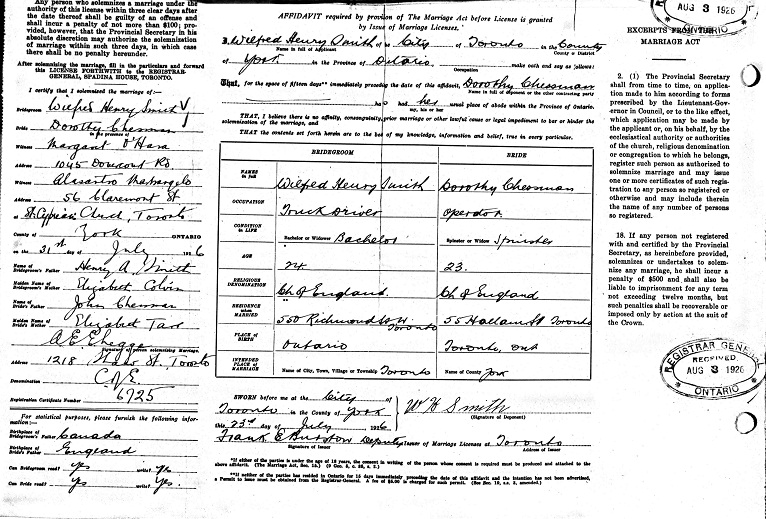 Any person who solemnizes a marriage under the
authority of this license within three clear days after
the date thereof shall be guilty of an offense and
shall incur a penalty of not more than $100; pro-
vided, however, that the Provincial Secretary in his
absolute discretion may authorize the solemnization
of marriage within three days, in which case
there shall be no penalty hereunder.
After solemnizing the marriage, fill in the particulars and forward
this LICENSE FORTHWITH TO THE REGISTRAR-
GENERAL, SPADINA HOUSE, TORONTO.
I certify that I solemnized the marriage of:—
Bridegroom Wilfred Henry Smith
Bride Dorothy Chesman
in the presence of
Witness Margaret O'Hara
Address 1045 Dovercourt Rd
Witness
Address 56 Claremont St
at St. Cyprians Church, Toronto
County of York ONTARIO
on the 31st day of July 1926
Name of Bridegroom's Father Henry A. Smith
Maiden Name of Bridegroom's Mother Elizabeth Colvin
Name of Bride's Father John Chesman
Maiden Name of Bride's Mother Elizabeth
Signature of person solemnizing Marriage.
Address 1218 Shaw St, Toronto
Denomination C of E.
Registration Certificate Number 6725
For statistical purposes, please furnish the following infor-
mation:—
Birthplace of Bridegroom's Father Canada
Birthplace of Bride's Father England
Can Bridegroom read? yes write? yes
Can Bride read? yes write? yes.
AFFIDAVIT required by provision of The Marriage Act before License is granted
by Issuer of Marriage Licenses.*
I, Wilfred Henry Smith of the City of Toronto in the County
Name in full of Applicant County or District
of York in the Province of Ontario make oath and say as follows:
Occupation
That, for the space of fifteen days** immediately preceding the date of this affidavit, Dorothy Chesman
Name in full of deponent or the other contracting party
has had her usual place of abode within the Province of Ontario.
my, his or her
THAT, I believe there is no affinity, consanguinity, prior marriage or other lawful cause or legal impediment to bar or hinder the
solemnization of the marriage, and
THAT the contents set forth herein are to the best of my knowledge, information and belief, true in every particular.
BRIDEGROOM BRIDE
NAMES in full Wilfred Henry Smith Dorothy Chesman
OCCUPATION Truck Driver operator
CONDITION in LIFE Bachelor or Widower Bachelor Spinster or Widow Spinster
AGE 24 23.
RELIGIOUS DENOMINATION Ch of England Ch of England
RESIDENCE when MARRIED 550 Richmond St W Toronto 55 Hallam St Toronto
PLACE OF BIRTH Ontario Toronto, Ont
INTENDED PLACE OF MARRIAGE Name of City, Town, Village or Township Toronto Name of County York
SWORN before me at the City
of Toronto in the County of York
this 23rd day of July 1926
W H Smith
(Signature of Deponent)
Frank E Burston Deputy Issuer of Marriage Licenses at Toronto
Signature of Issuer Address of Issuer
*If either of the parties is under the age of 18 years, the consent in writing of the person whose consent is required must be produced and attached to the
above affidavit. (The Marriage Act, Sec. 15.)
**If neither of the parties has resided in Ontario for 15 days immediately preceding the date of this affidavit and the intention has not been advertised,
a Permit to issue must be obtained from the Registrar-General. A fee of $5.00 is charged for such permit.
AUG 3 1926
EXCERPTS FROM THE
MARRIAGE ACT
2. (1) The Provincial Secretary
shall from time to time, on appli-
cation made to him according to forms
prescribed by the Lieutenant-Gov-
ernor in Council, or to the like effect,
which application may be made by
the applicant or, on his behalf, by the
ecclesiastical authority or authorities
of the church, religious denomination
or congregation to which he belongs,
register such person as authorized to
solemnize marriage and may issue
one or more certificates of such regis-
tration to any person so registered or
otherwise and may include therein
the name of any number of persons
so registered.
18. If any person not registered
with and certified by the Provincial
Secretary, as hereinbefore provided,
solemnizes or undertakes to solem-
nize any marriage, he shall incur a
penalty of $500 and shall also be
liable to imprisonment for any term
not exceeding twelve months, but
such penalties shall be recoverable or
imposed only by action at the suit of
the Crown.
REGISTRAR GENERAL
RECEIVED
AUG 3 1926
ONTARIO